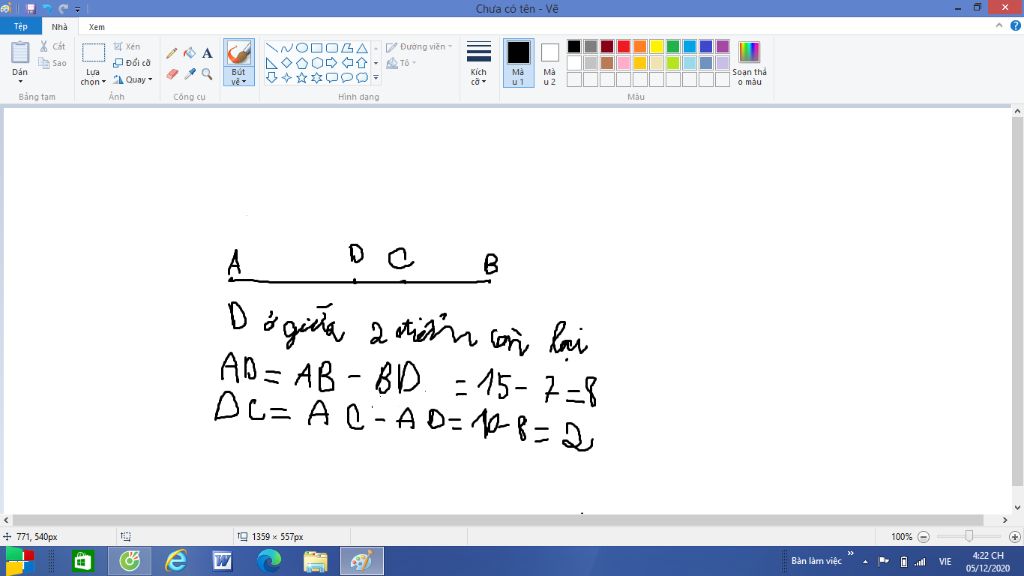 Chưa có tên - Vẽ
Tệp Nhà Xem
Dán
Cắt
Sao
Bảng tạm
Lựa chọn
Xén
Đổi cỡ
Quay
Ảnh
Công cụ
A
Bút vẽ
Hình dạng
Đường viền
Tô
Kích cỡ
Màu 1
Màu 2
Màu
Soạn thảo màu
A D C B
D ở giữa 2 điểm còn lại
AD = AB - BD = 15 - 7 = 8
DC = AC - AD = 10 - 8 = 2
771, 540px
1359 × 557px
100%
Bàn làm việc
VIE
4:22 CH
05/12/2020